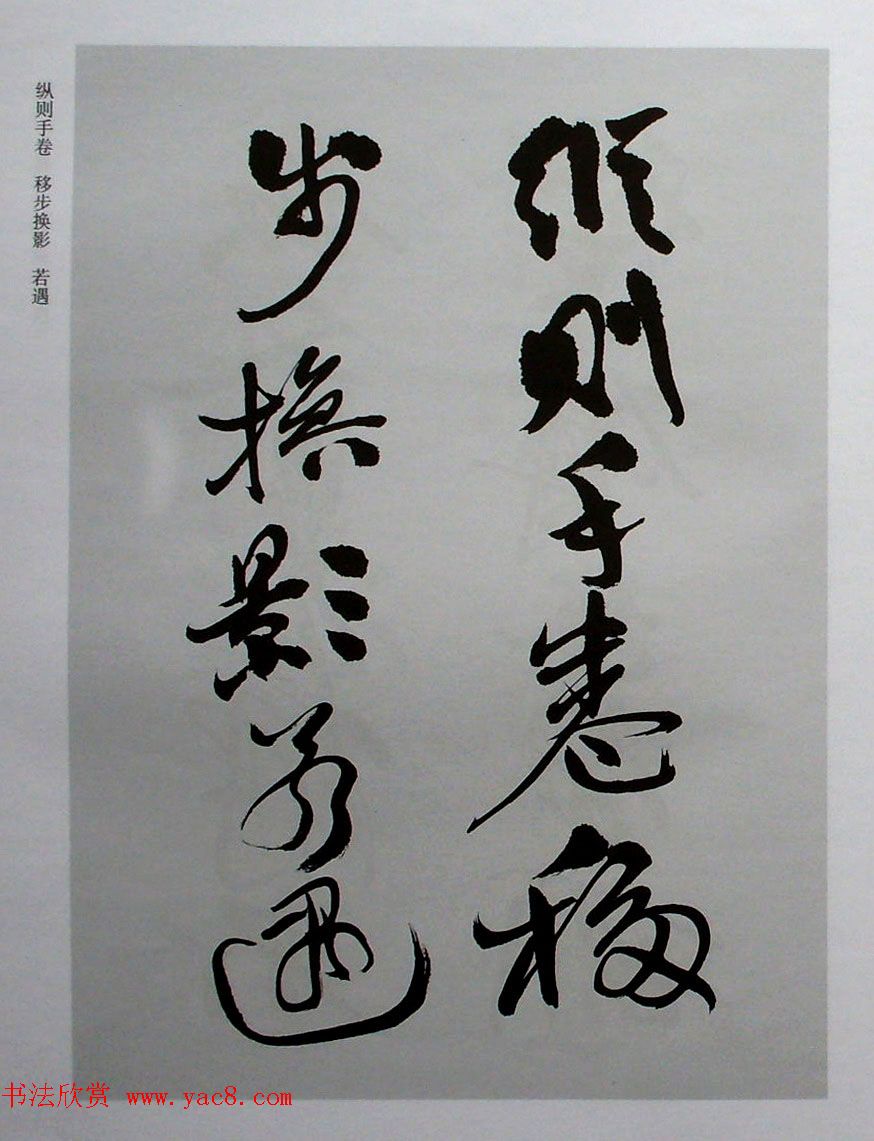 纵则手卷移
步换影若遇
纵则手卷 移步换影 若遇
书法欣赏 www.yac8.com